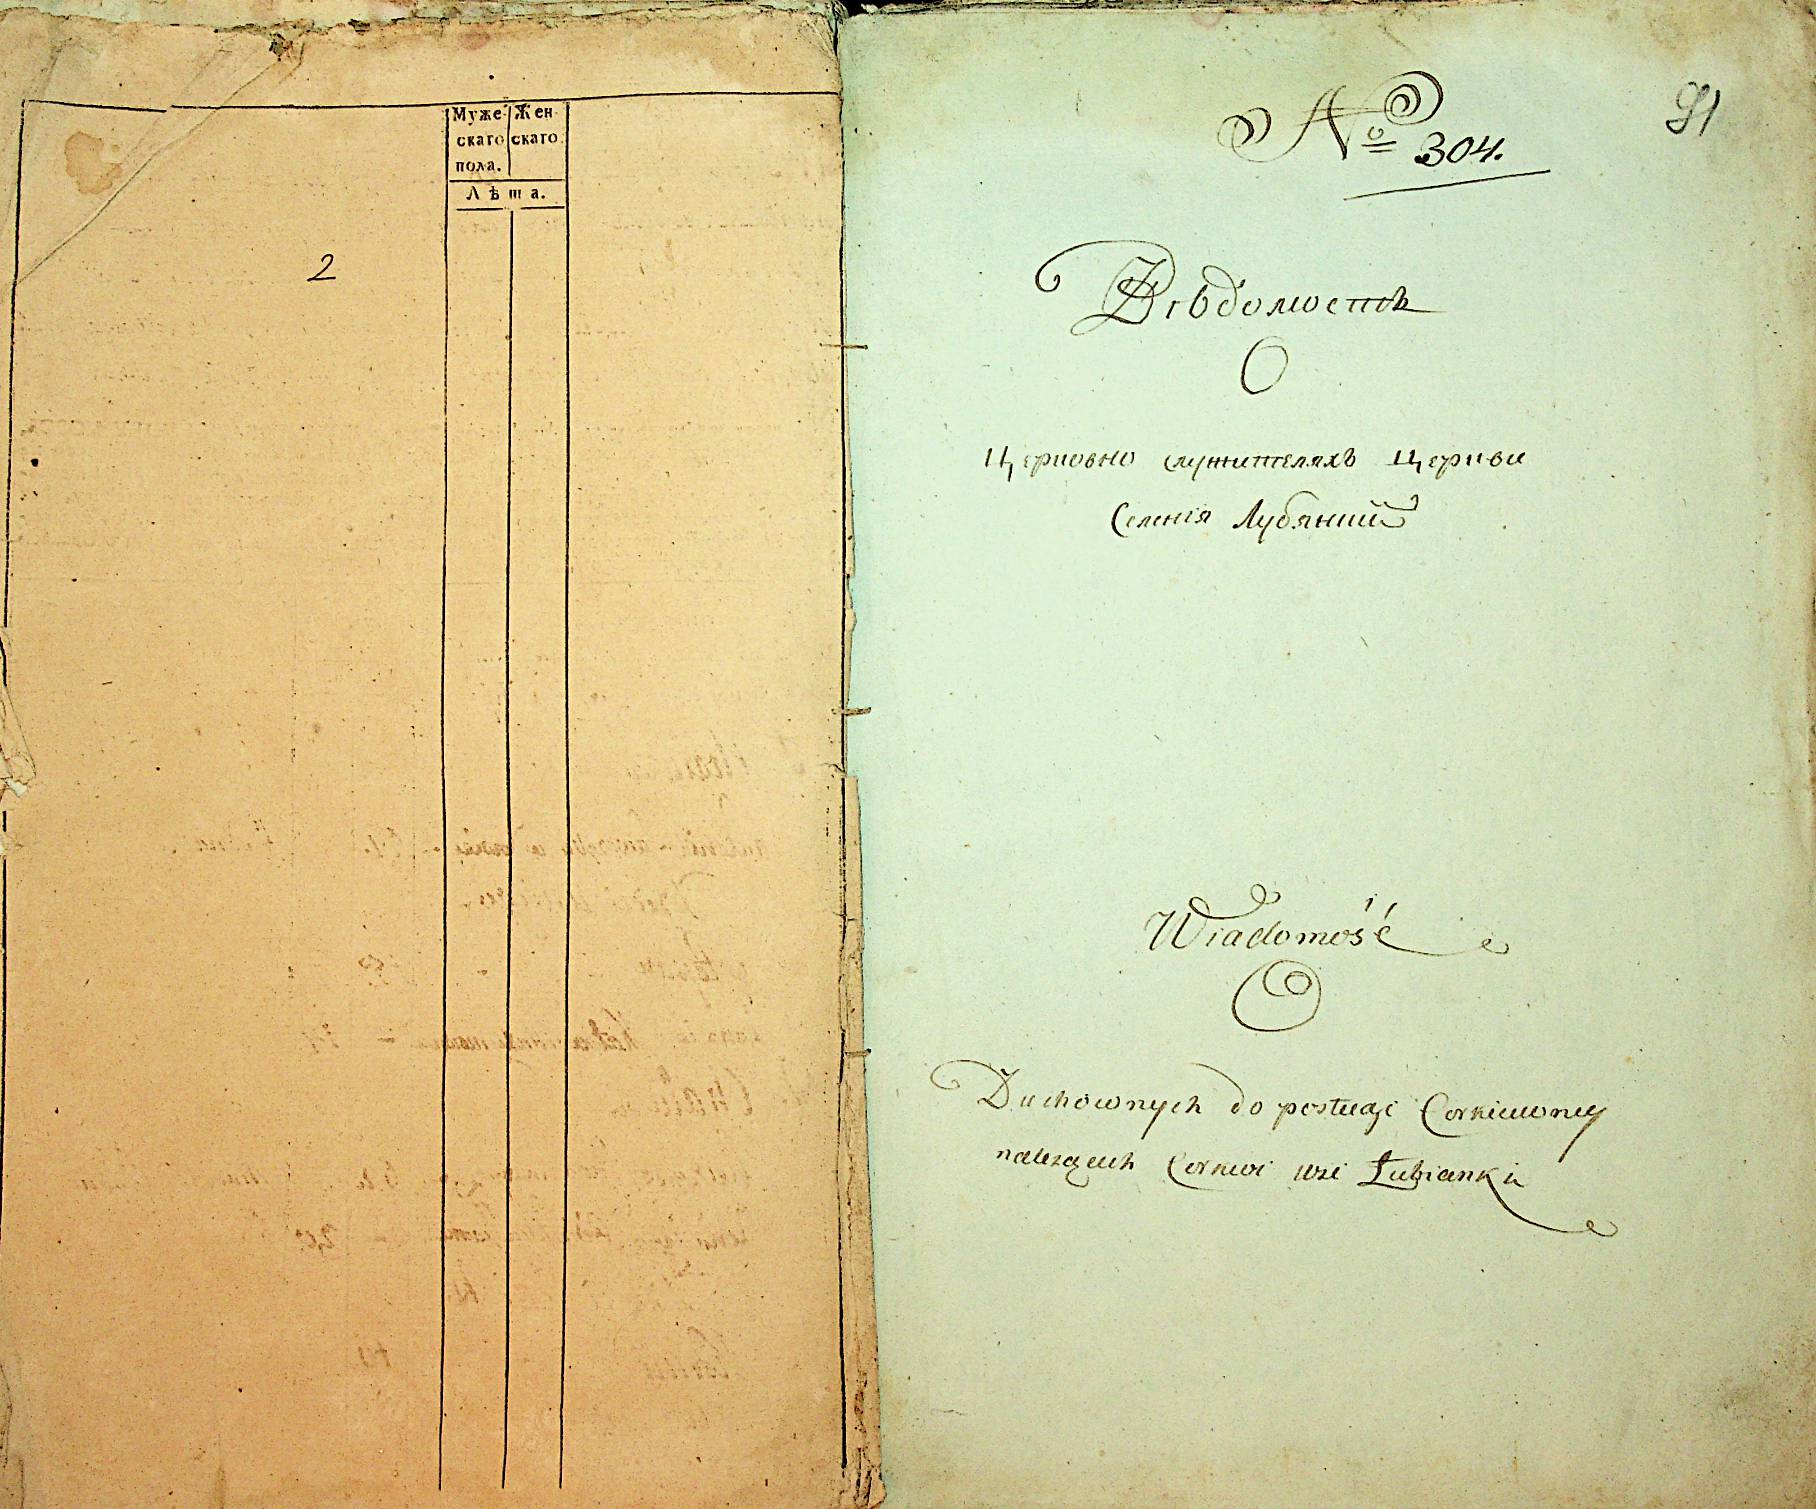 Муже- Жен-
скаго скаго.
пола.
Лѣта.
2
№ 304.
91
Вѣдомость
О
Церковно служителяхъ Церкви
Селенія Лубянкий
Wiadomość
O
Duchownych do posługi Cerkiewney
należących Cerkwi wsi Łubianki